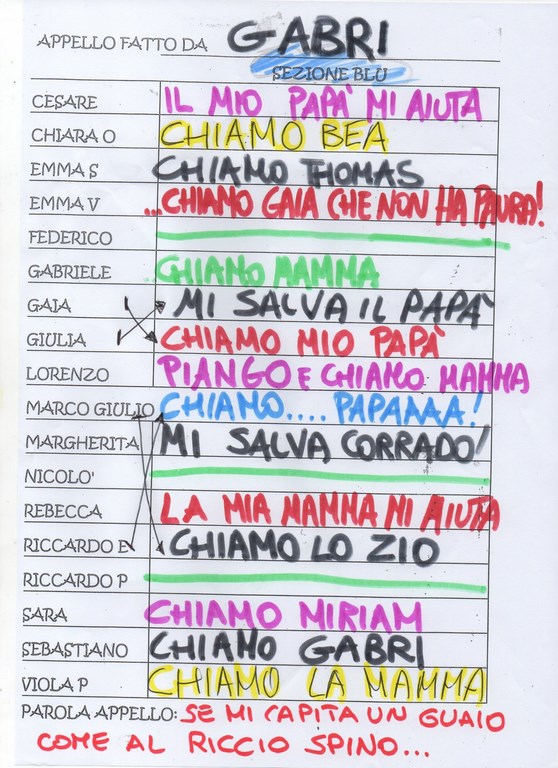 APPELLO FATTO DA GABRI
SEZIONE BLU
CESARE IL MIO PAPA' MI AIUTA
CHIARA O CHIAMO BEA
EMMA S CHIAMO THOMAS
EMMA V ...CHIAMO GAIA CHE NON HA PAURA!
FEDERICO
GABRIELE CHIAMO MAMMA
GAIA MI SALVA IL PAPA'
GIULIA CHIAMO MIO PAPA'
LORENZO PIANGO E CHIAMO MAMMA
MARCO GIULIO CHIAMO.... PAPAAAA!
MARGHERITA MI SALVA CORRADO!
NICOLO'
REBECCA LA MIA MAMMA MI AIUTA
RICCARDO E CHIAMO LO ZIO
RICCARDO P
SARA CHIAMO MIRIAM
SEBASTIANO CHIAMO GABRI
VIOLA P CHIAMO LA MAMMA
PAROLA APPELLO: SE MI CAPITA UN GUAIO
COME AL RICCIO SPINO...